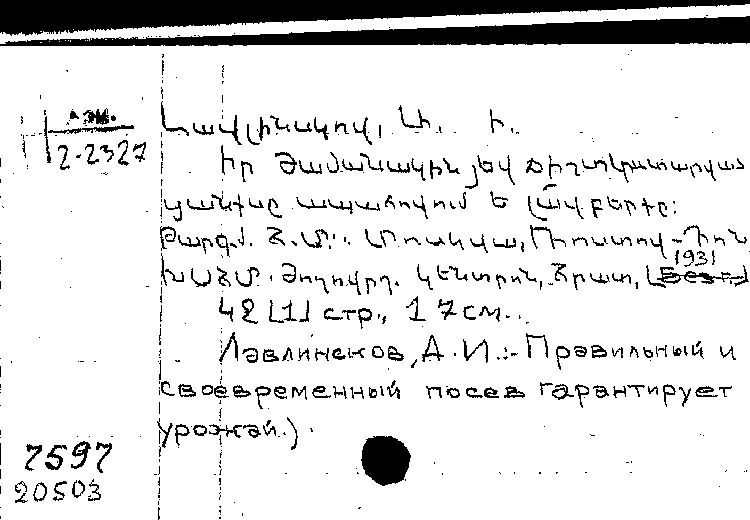 Арм.
2-2327
Լավլինսկով, Ա. Ի.
Իր ժամանակին յեվ ճիշտ կատարված
ցանքսը ապահովում ե լավ բերքը:
Թարգմ. Հ. Մ.: Մոսկվա, Ռոստով-Դոն,
ԽՍՀՄ. Ժողովրդ. Կենտրոն. Հրատ, [Без г.] 1931
42 [1] стр., 17см.
Лавлинсков, А. И.:- Правильный и
своевременный посев гарантирует
урожай.)
7597
20503